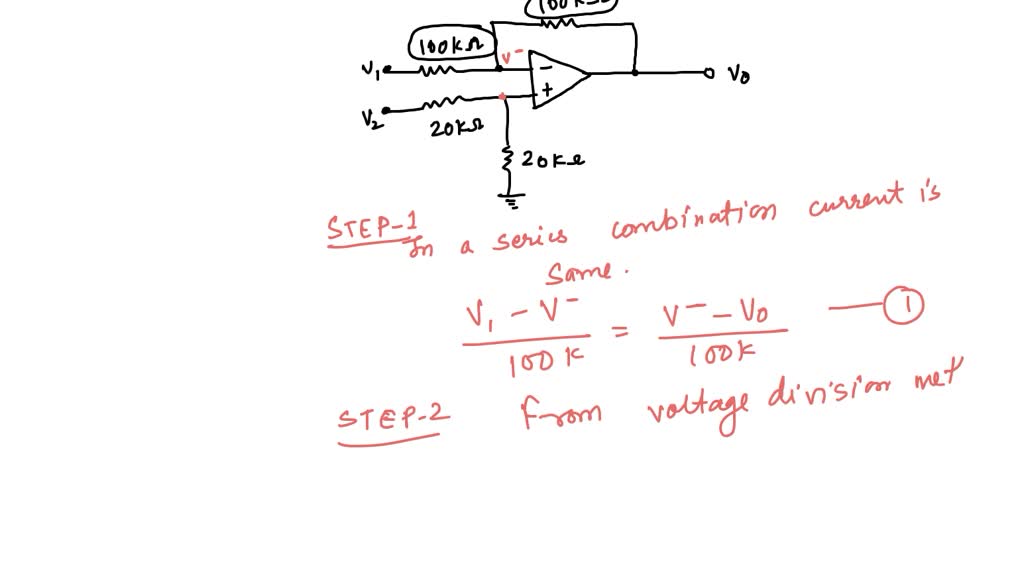 100kΩ
100kΩ
V⁻
V₁
−
+
V₀
V₂
20kΩ
20kΩ
STEP-1
In a series combination current is
same.
V₁ − V⁻ / 100K = V⁻ − V₀ / 100K — ①
STEP-2 From voltage division met